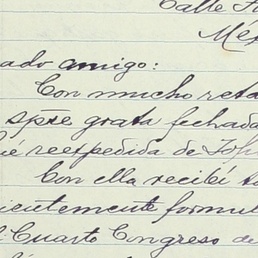 Calle
Méx
ado amigo:
Con mucho reta
spre grata fechada
ué reexpedida de
Con ella recibí
cientemente formul
Cuarto Congreso de